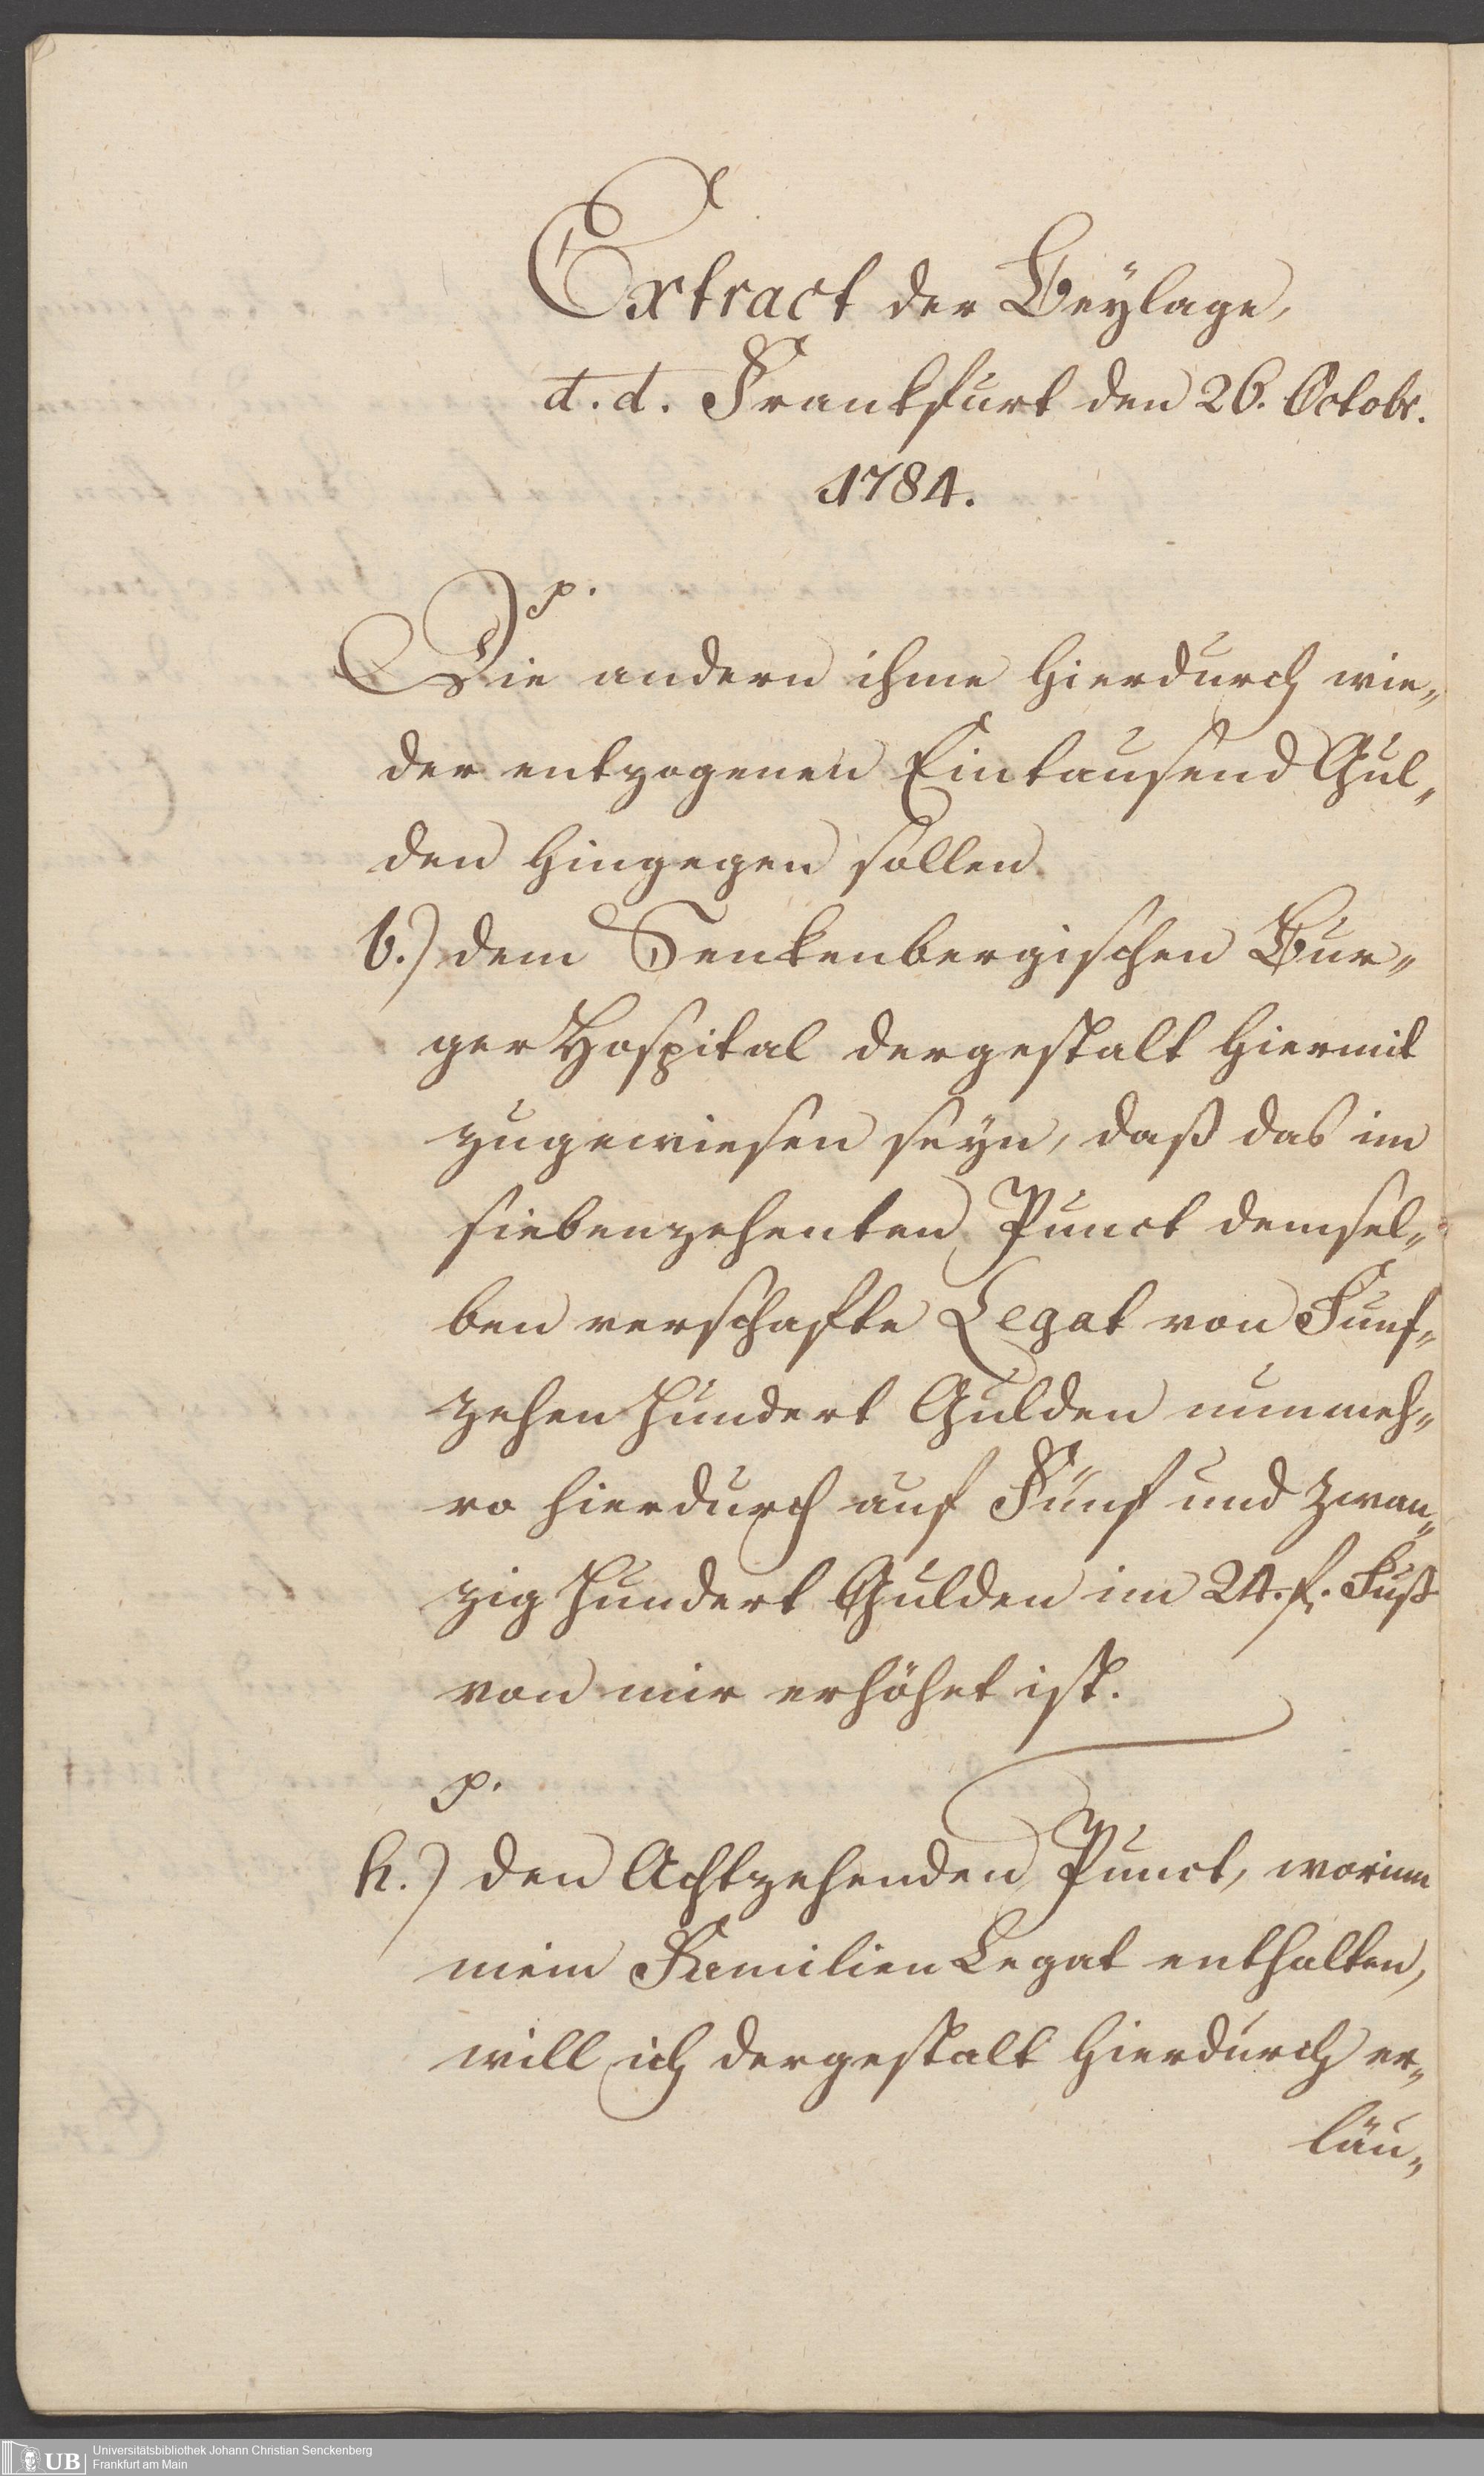 Extract der Beÿlage,
d. d. Franckfurt den 26. Octobr.
1784.
p.
Die andern ihme hierdurch wie„
der entzogenen Eintausend Gul„
den hingegen sollen
b.) dem Senkenbergischen Bur„
ger Hospital dergestalt hiermit
zugewiesen seÿn, daß das im
siebenzehenten Punct demsel„
ben verschafte Legat von Funf„
zehen hundert Gulden nunmeh„
ro hierdurch auf Fünf und zwan„
zig hundert Gulden im 24. f. Fuß
von mir erhöhet ist.
p.
h.) den Achtzehenden Punct, worinn
mein Familien Legat enthalten,
will ich dergestalt hierdurch er„
läu„
UB
Universitätsbibliothek Johann Christian Senckenberg
Frankfurt am Main